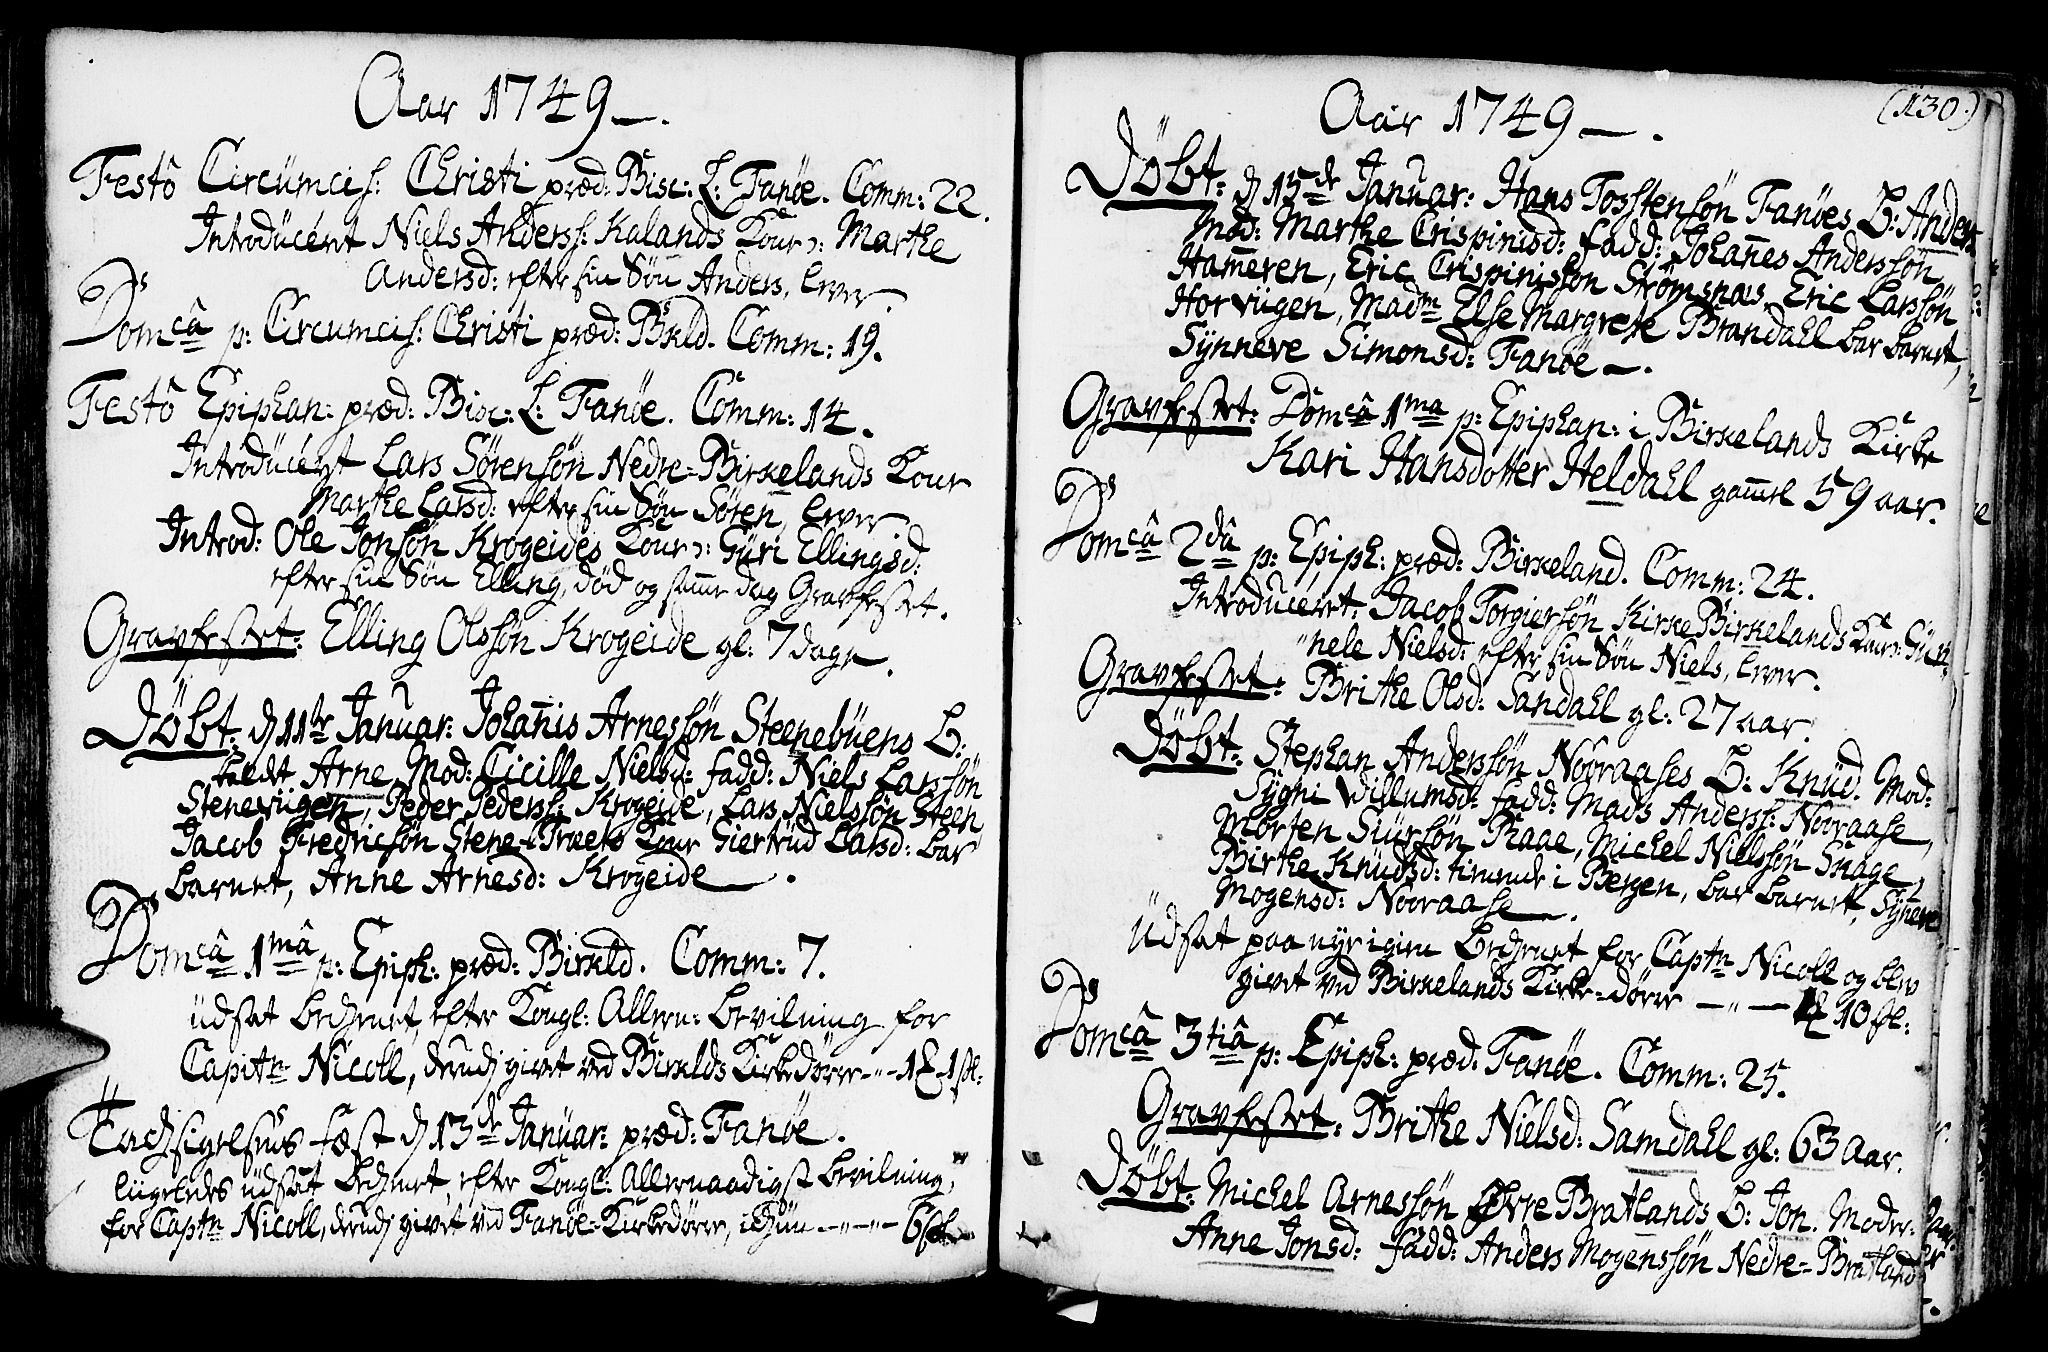 Aar 1749 —.
Festô Circumcis: Christi præd: Bisc: L: Fanöe. Comm: 22.
Introduceret Niels Anderss: Kalands Kone ɔ: Marthe
Andersd: efter sin Sön Anders, lever.
Domcâ p: Circumcis: Christi præd: Bkld. Comm: 19.
Festô Epiphan: præd: Bisc: L: Fanöe. Comm: 14.
Introduceret Lars Sörensön Nedre-Birkelands Kone
Marthe Larsd: efter sin Sön Sören, lever
Introd: Ole Jonsön Krogeides Kone ɔ: Guri Ellingsd:
efter sin Sön Elling, död og samme dag Gravfestet.
Gravfestet: Elling Olssön Krogeide gl: 7 dage.
Döbt: d 11te Januar: Johanis Arnessön Steenebuens B:
kaldt Arne, Mod: Cicille Nielsd: fadd: Niels Larssön
Stenevigen, Peder Pederss: Krogeide, Lars Nielssön Steen
Jacob Fredricsön Stene-Træets Kone Giertrud Larsd: bar
barnet, Anne Arnesd: Krogeide —.
Domcâ 1mâ p: Epiph: præd: Birkld. Comm: 7.
udsat bechenet, efter Kongl: Allern: bevilning for
Capitn Nicoll, derudj givet ved Birklds Kirkedörre — " — 1 1 sk:
Tachsigelsens fæst d 13de Januar: præd: Fanöe.
liigeledes udsat bechenet, efter Kongl: Allernaadigst bevilning,
for Captn Nicoll, derudj givet ved Fanöe-Kirkedörre, — " — " — 6 sk
(130.)
Aar 1749 —.
Döbt: d 15de Januar: Hans Tosstensön Fanöes B: Anders
Mod: Marthe Crispinisd: fadd: Johanes Anderssön
Hameren, Eric Crispinissön Strömsnæs, Eric Larssön
Horviigen, Madm Else Margrete Brandahl bar barnet,
Synneve Simonsd: Fanöe —.
Gravfestet: Domcâ 1ma p: Epiphan: i Birkelands Kirke
Kari Hansdotter Heldahl gamel 59 aar.
Domcâ 2dâ p: Epiph: præd: Birkeland. Comm: 24.
Introduceret: Jacob Torgiersön Kirke Birkelands Kone ɔ: Gun
"nele Nielsd: efter sin Sön Niels, lever.
Gravfestet: Brithe Olsd: Sandahl gl: 27 aar.
Döbt: Stephan Anderssön Nöoraases B: Knud. Mod:
Sygni Villumsd: fadd: Mads Anderss: Nöoraase,
Morten Siursön Raae, Michel Nielssön Skage,
Birthe Knudsd: tienende i Bergen, bar barnet, Synneve
Mogensd: Nöoraase —.
Udsat paa nye igien bechenet for Captn Nicoll og blev
givet ved Birkelands Kirke-dörre — " — 10 sk:
Domcâ 3tiâ p: Epiph: præd: Fanöe. Comm: 25.
Gravfestet: Brithe Nielsd: Samdahl gl: 63 aar.
Döbt: Michel Arnessön Övre Bratlands B: Jon. Moder:
Anne Jonsd: fadd: Anders Mogenssön Nedre-Bratland